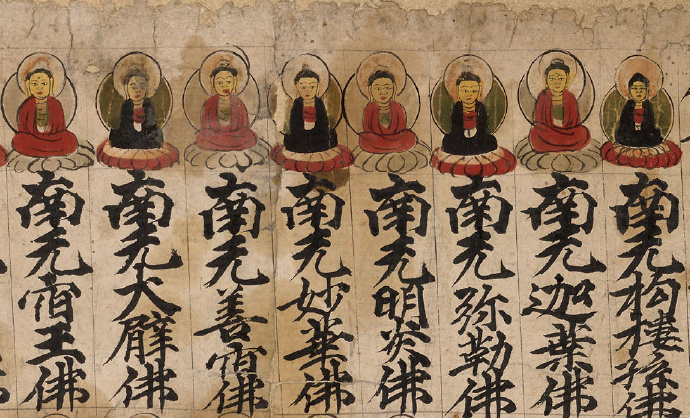 南无拘樓孫佛
南无迦葉佛
南无弥勒佛
南无明炎佛
南无妙華佛
南无善宿佛
南无大臂佛
南无宿王佛